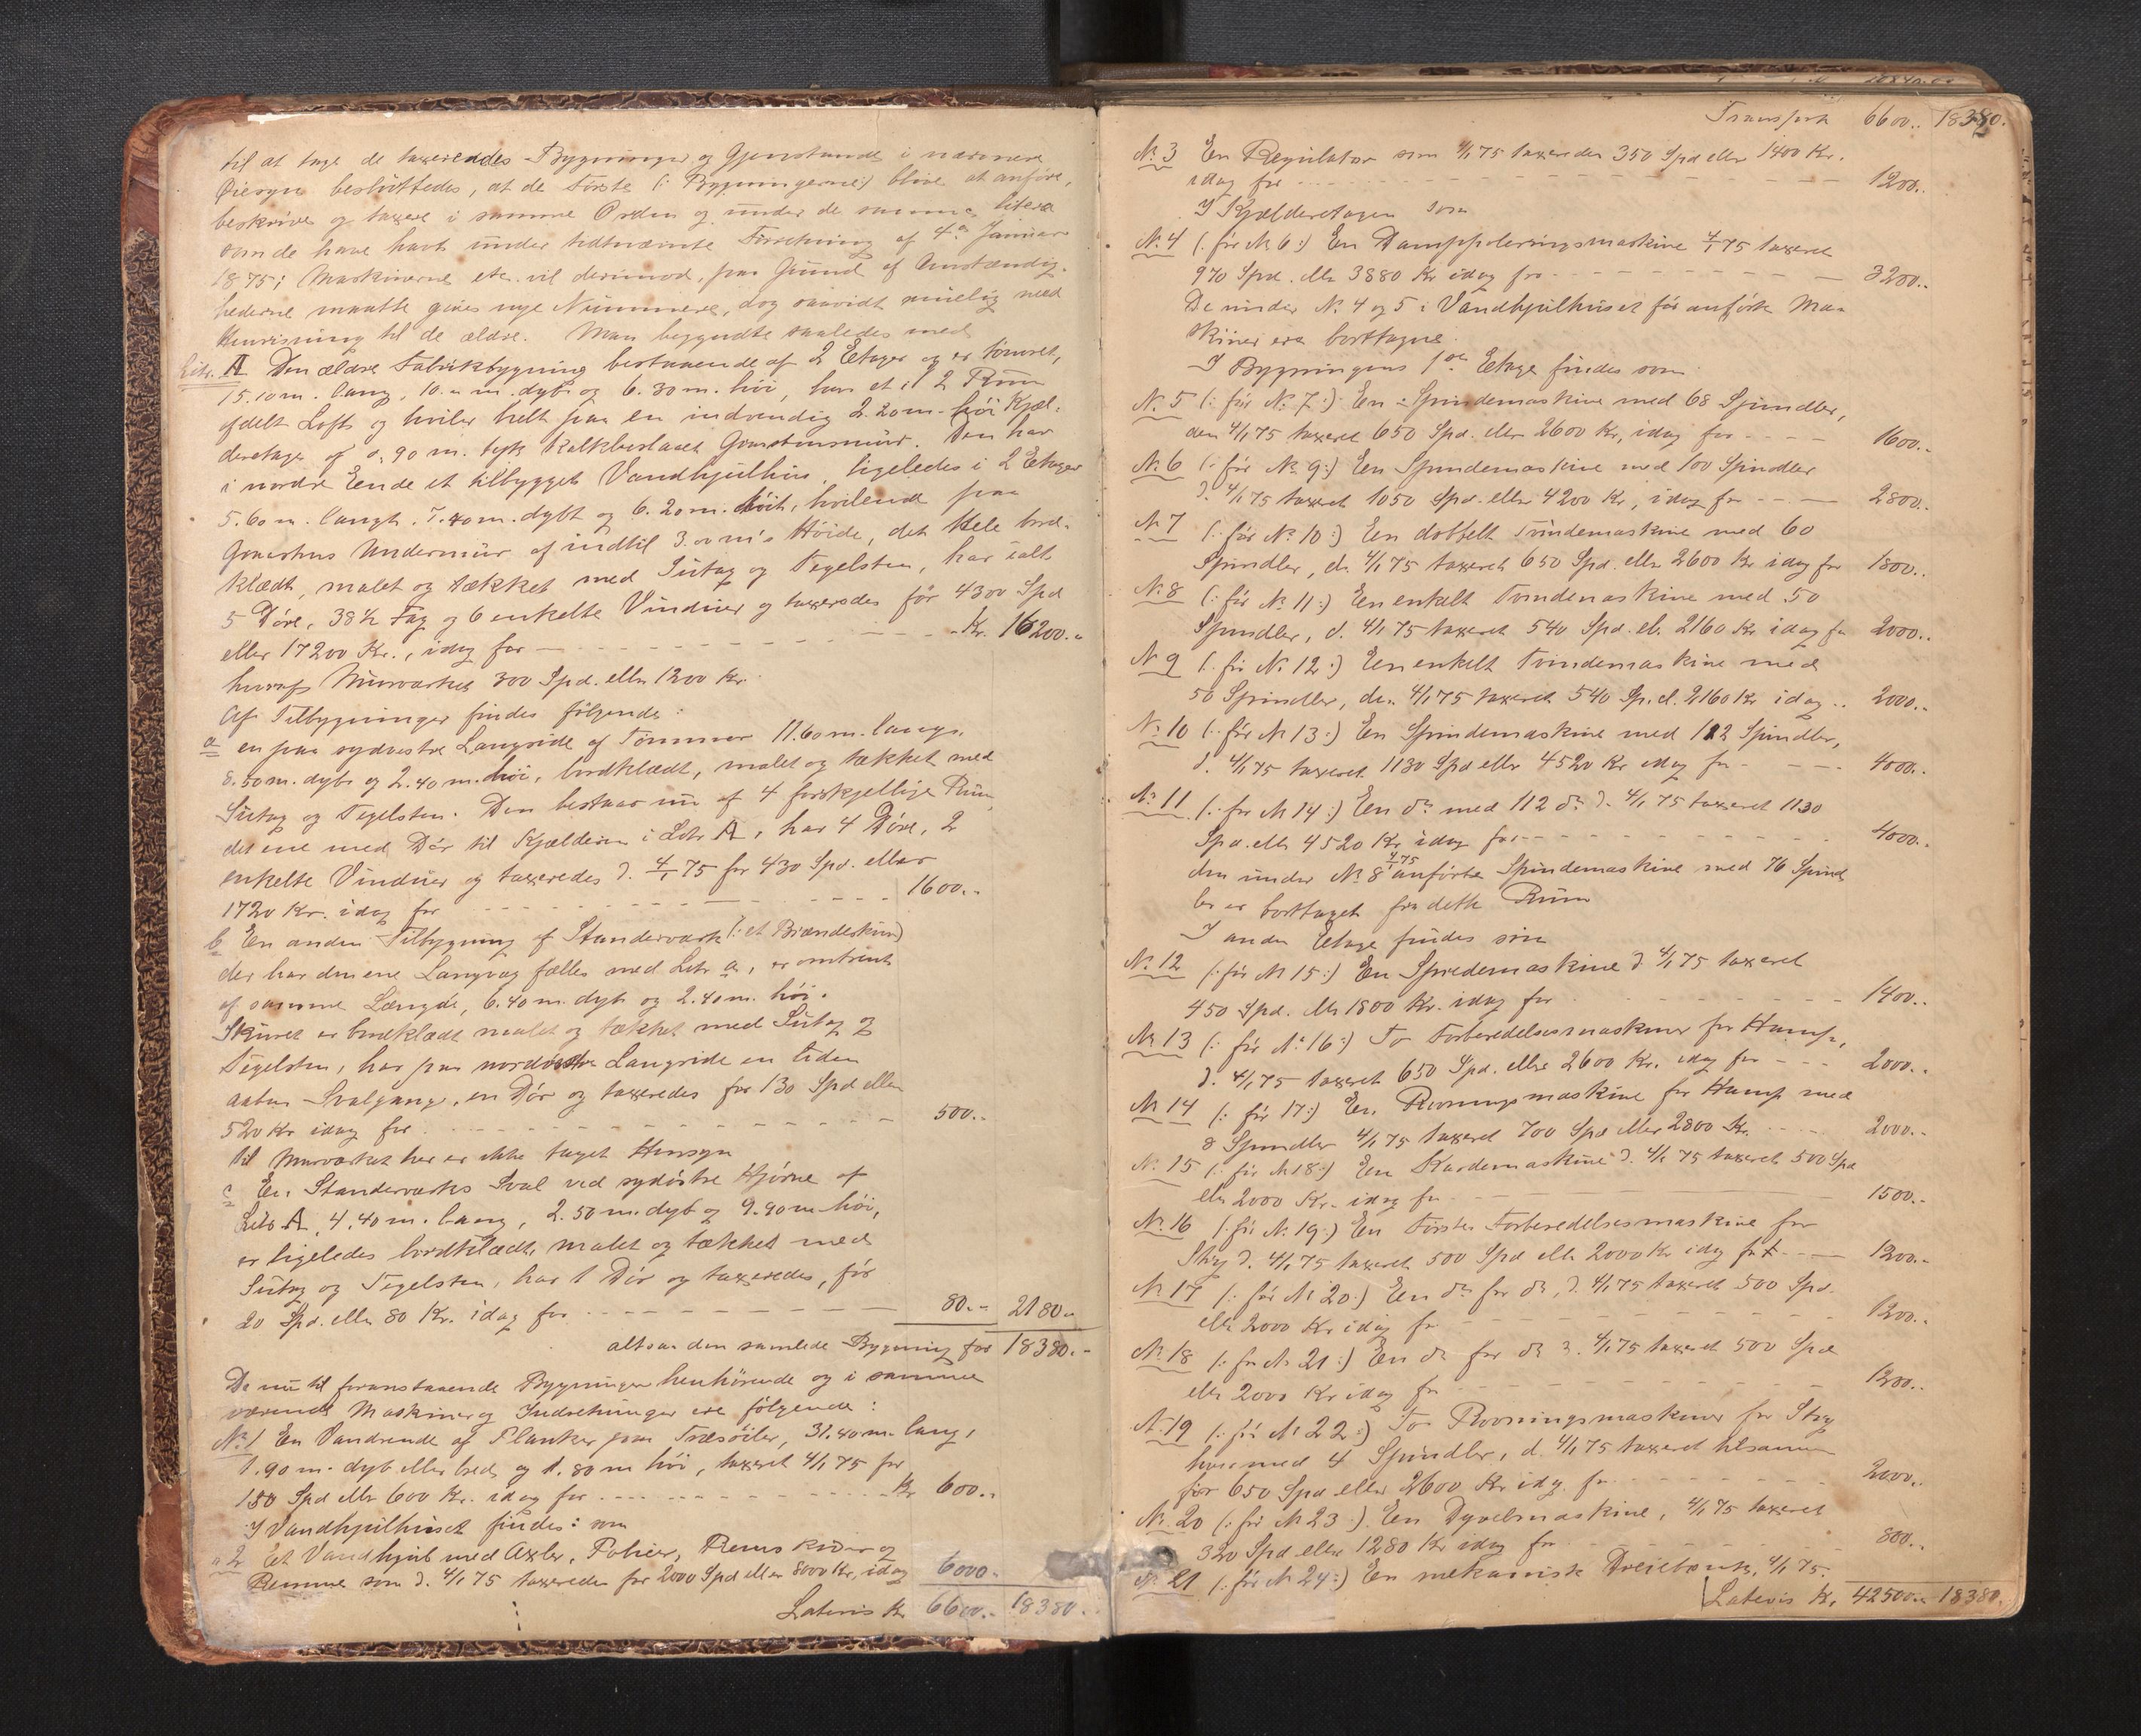 til at tage de taxerendes Bygninger og Gjenstande i nærmere
Øiesyn besluttedes, at de første (: Bygningerne:) blive at anføre,
beskrive og taxere i samme Orden og under de samme Litera
som de have havt under sidtnævnte Forretning af 4de Januar
1875; Maskinerne etc. vil derimod, paa Grund af Omstændig-
hederne maatte gives nye Nummere, dog saavidt muelig med
Henvisning til de ældre. Man begyndte saaledes med
Litr. A. Den ældre Fabrikbygning bestaaende af 2 Etager og er tømret,
15.10 m. lang, 10.00 m. dyb og 6.30 m. høi, har et i 2 Rum
afdelt Loft og hviler helt paa en indvendig 2.20 m. høi Kjæl-
deretage af 0,90 m. tyk Kalkbeslaaet Graastensmuur. Den har
i nordre Eende et tilbygget Vandhjulhus, ligeledes i 2 Etager
5.60 m. langt, 7.40 m. dybt og 6.20 m. høit, hvilende paa
Graastens Undermuur af indtil 3.00 m's Høide, det Hele bord-
klædt, malet og tækket med Sutag og Tegelsten, har ialt
5 Døre, 38½ Fag og 6 enkelte Vinduer og taxeredes før 4300 Spd
eller 17200 Kr., idag for Kr. 16200.-
hvoraf Murværket 300 Spd. eller 1200 Kr.
Af Tilbygninger findes følgende:
a en paa sydvestre Langside af Tømmer 11.60 m. lang,
8.50 m. dyb og 2.40 m. høi, bordklædt, malet og tækket med
Sutag og Tegelsten. Den bestaar nu af 4 forskjellige Rum,
det ene med Dør til Kjælderen i Litr A, har 4 Døre, 2
enkelte Vinduer og taxeredes d. 4/1 75 for 430 Spd. eller
1720 Kr. idag for 1600.-
b En anden Tilbygning af Standerværk (: et Brændeskur)
der har den ene Langvæg fælles med Litr a, er omtrent
af samme Længde, 6.40 m. dyb og 2.40 m. høi.
Skuret er bordklædt malet og tækket med Sutag og
Tegelsten, har paa nordøstre Langside en liden
aaben Svalgang, en Dør og taxeredes for 130 Spd eller
520 Kr idag for 500.-
til Murværket her er ikke taget Hensyn
c En Standerværks Sval ved sydøstre Hjørne af
Litr A, 4.40 m. lang, 2.50 m. dyb og 9.90 m. høi,
er ligeledes bordklædt, malet og tækket med
Sutag og Tegelsten, har 1 Dør og taxeredes, før
20 Spd. eller 80 Kr. idag for 80.- 2180.-
altsaa den samlede Bygning for 18380.-
De nu til foranstaaende Bygninger henhørende og i samme
værende Maskiner og Indretninger ere følgende:
No 1 En Vandrende af Planker paa Træsøiler, 31.40 m. lang,
1.90 m. dyb eller bred og 1.80 m høi, taxeret 4/1 75 for
150 Spd eller 600 Kr. idag for Kr 600.-
I Vandhjulhuset findes: som
" 2 Et Vandhjul med Axler, Remskiver og
Remme som d. 4/1 75 taxeredes for 2000 Spd eller 8000 Kr, idag 6000.-
Lateris Kr 6600.- 18380.-
Transport 6600.. 18380.
No 3 En Regulator som 4/1 75 taxeredes 350 Spd eller 1400 Kr.
idag for 1200..
I Kjælderetagen som
No 4 (: før No 6:) En Damppoleringsmaskine 4/1 75 taxeret
970 Spd. eller 3880 Kr idag for 3200..
De under No 4 og 5 i Vandhjulhuset før anførte Ma-
skiner ere borttagne.
I Bygningens 1ste Etage findes som
No 5 (: før No 7:) En Spindemaskine med 68 Spindler,
den 4/1 75 taxeret 650 Spd. eller 2600 Kr, idag for 1600..
No 6 (: før No 9:) En Spindemaskine med 100 Spindler
d. 4/1 75 taxeret 1050 Spd. eller 4200 Kr, idag for 2800..
No 7 (: før No 10:) En dobbelt Tvindemaskine med 60
Spindler, d. 4/1 75 taxeret 650 Spd. eller 2600 Kr idag for 1800..
No 8 (: før No 11:) En enkelt Tvindemaskine med 50
Spindler, d. 4/1 75 taxeret 540 Spd. el. 2160 Kr idag for 2000..
No 9 (: før No 12:) En enkelt Tvindemaskine med
50 Spindler, den 4/1 75 taxeret 540 Sp. el. 2160 Kr idag .. 2000..
No 10 (: før No 13:) En Spindemaskine med 112 Spindler,
d. 4/1 75 taxeret 1130 Spd eller 4520 Kr idag for 4000..
No 11 (: før No 14:) En do med 112 do d. 4/1 75 taxeret 1130
Spd. eller 4520 Kr, idag for 4000..
den under No 8 4/1 75 anførte Spindemaskine med 76 Spind
ler er borttaget fra dette Rum
I anden Etage findes som
No 12 (: før No 15:) En Spredemaskine d 4/1 75 taxeret
450 Spd. eller 1800 Kr. idag for 1400..
No 13 (: før No 16:) To Forberedelsesmaskiner for Hamp,
d. 4/1 75 taxeret 650 Spd. eller 2600 Kr. idag for 2000..
No 14 (: før 17:) En Rovningsmaskine for Hamp med
8 Spindler 4/1 75 taxeret 700 Spd eller 2800 Kr. 2000.-
No 15 (: før No 18:) En Kardemaskine d. 4/1 75 taxeret 500 Spd
eller 2000 Kr. idag for 1500.-
No 16 (: før No 19:) En Første Forberedelsesmaskine for
Stry d. 4/1 75 taxeret 500 Spd eller 2000 Kr idag for 1200.-
No 17 (: før No 20:) En do for do, d. 4/1 75 taxeret 500 Spd.
eller 2000 Kr idag for 1200..
No 18 (: før No 21:) En do for do d. 4/1 75 taxeret 500 Spd
eller 2000 Kr idag for 1200..
No 19 (: før No 22:) To Rovningsmaskiner for Stry
hver med 4 Spindler, d. 4/1 75 taxeret tilsammen
for 650 Spd eller 2600 Kr idag for 2000..
No 20 (: før No 23:) En Dyvelmaskine, 4/1 75 taxeret
320 Spd eller 1280 Kr idag for 800..
No 21 (: før No 24:) En mekanisk Dreiebænk, 4/1 75.
Lateris Kr. 42500.- 18380.